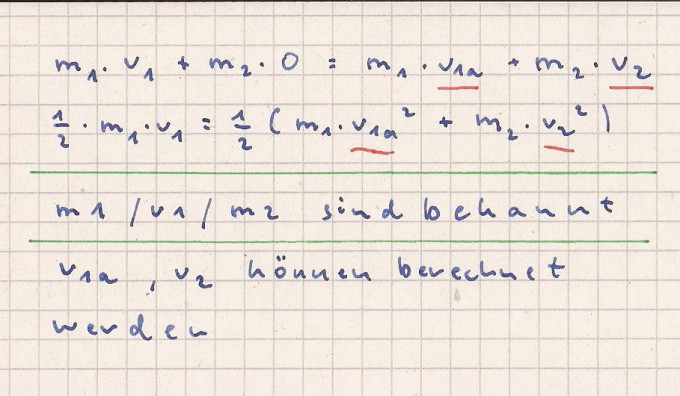 m₁ · v₁ + m₂ · 0 = m₁ · v₁ₐ + m₂ · v₂
½ · m₁ · v₁ = ½ ( m₁ · v₁ₐ² + m₂ · v₂² )
m1 / v1 / m2 sind bekannt
v₁ₐ , v₂ können berechnet
werden